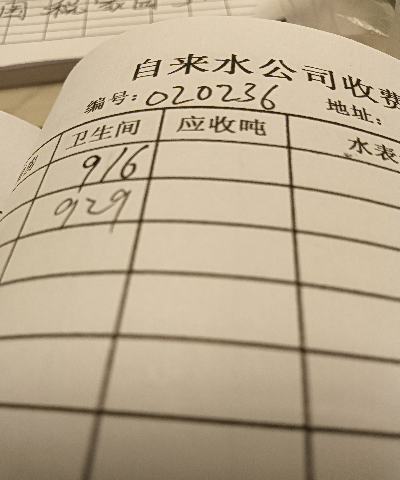 自来水公司收费
编号: 020236 地址:
卫生间 应收吨 水表
916
929